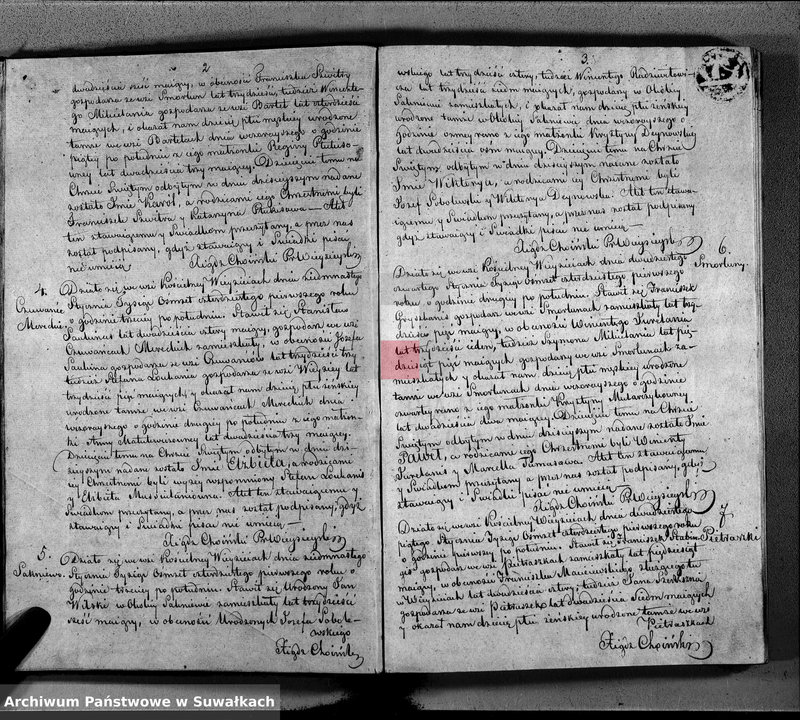 2
dwadzieścia sześć maiący, w obecności Franciszka Skwitry
gospodarza ze wsi Smorlun lat trzydzieści, tudzież Wincente-
go Milcidania gospodarza ze wsi Bartel lat czterdzieści
maiących, i okazał nam dziecię płci męskiej urodzone
tamże we wsi Bartelach dnia wczorayszego o godzinie
piątej po południu z iego małżonki Reginy
lat dwadzieścia trzy maiącej. Dziecięciu temu na
Chrzcie Świętym odbytym w dniu dzisieyszym nadane
zostało Imie Karol, a rodzicami iego Chrzestnemi byli
Franciszek Skwitra y Katarzyna — Akt
ten stawaiącemu y Świadkom przeczytany, a przez nas
został podpisany, gdyż stawaiący i Świadki pisać
nie umieią
Xiądz Choiński P. Wieysieyski
4.
Działo się we wsi Kościelney Wieysieiach dnia siedmnastego
Stycznia Tysiąc Ośmset czterdziestego pierwszego roku
o godzinie trzeciey po południu. Stawił się Stanisław
lat dwadzieścia cztery maiący, gospodarz we wsi
Mereckich zamieszkały, w obecności Józefa
gospodarza ze wsi lat trzydzieści trzy
tudzież Stefana Loukania gospodarza ze wsi lat
trzydzieści pięć maiących y okazał nam dziecię płci żeńskiey
urodzone tamże we wsi Mereckich dnia
wczorayszego o godzinie drugiey po południu z iego małżon-
ki Anny lat dwadzieścia trzy maiącey.
Dziecięciu temu na Chrzcie Świętym odbytym w dniu dzi-
sieyszym nadane zostało Imie Elżbieta, a rodzicami
iey Chrzestnemi byli wyżey wspomniony Stefan Loukanis
y Elżbieta Akt ten stawaiącemu y
Świadkom przeczytany, a przez nas został podpisany, gdyż
stawaiący i Świadki pisać nie umieią —
Xiądz Choiński P. Wieysieyski
5.
Działo się we wsi Kościelney Wieysieiach dnia siedmnastego
Stycznia Tysiąc Ośmset czterdziestego pierwszego roku o
godzinie trzeciey po południu. Stawił się Urodzony Jan
Wilski w Okolicy zamieszkały lat trzydzieści
sześć maiący, w obecności Urodzonych Józefa Sobole-
wskiego
Xiądz Choiński
3.
wskiego lat trzydzieści cztery, tudzież Wincentego Radziukiewi-
cza lat trzydzieści siedm maiących, gospodarzy w Okolicy
zamieszkałych, i okazał nam dziecię płci żeńskiey
urodzone tamże w Okolicy dnia wczorayszego o
godzinie ósmey rano z iego małżonki Krystyny Deynowskiey
lat dwadzieścia ośm maiącey. Dziecięciu temu na Chrzcie
Świętym odbytym w dniu dzisieyszym nadane zostało
Imie Wiktorya, a rodzicami iey Chrzestnemi byli
Józef Sobolewski y Wiktorya Deynowska. Akt ten stawa-
iącemu y Świadkom przeczytany, a przez nas został podpisany
gdyż stawaiący i Świadki pisać nie umieią —
Xiądz Choiński P. Wieysieyski
6.
Smorluny.
Działo się we wsi Kościelney Wieysieiach dnia dwudziestego
czwartego Stycznia Tysiąc Ośmset czterdziestego pierwszego
roku o godzinie drugiey po południu. Stawił się Franciszek
gospodarz we wsi Smorlunach zamieszkały lat trzy-
dzieści pięć maiący, w obecności Wincentego
lat trzydzieści cztery, tudzież Szymona Milcidania lat pię-
dziesiąt pięć maiących gospodarzy we wsi Smorlunach za-
mieszkałych y okazał nam dziecię płci męskiey urodzone
tamże we wsi Smorlunach dnia wczorayszego o godzinie
czwartey rano z iego małżonki Krystyny
lat dwadzieścia dwa maiącey. Dziecięciu temu na Chrzcie
Świętym odbytym w dniu dzisieyszym nadane zostało Imie
Paweł, a rodzicami iego Chrzestnemi byli Wincenty
y Marcella Tamasowa. Akt ten stawaiącemu
y Świadkom przeczytany a przez nas został podpisany, gdyż
stawaiący i Świadki pisać nie umieią —
Xiądz Choiński P. Wieysieyski
7
Pietraszki
Działo się we wsi Kościelney Wieysieiach dnia dwudziestego
piątego Stycznia Tysiąc Ośmset czterdziestego pierwszego roku
o godzinie pierwszey po południu. Stawił się Franciszek
gospodarz we wsi Pietraszkach zamieszkały lat pięćdziesiąt
maiący, w obecności Franciszka Maciewskiego służącego
w Wieysieiach lat dwadzieścia cztery, tudzież Jana
gospodarza ze wsi Pietraszek lat dwadzieścia siedm maiących
y okazał nam dziecię płci żeńskiey urodzone tamże we wsi
Pietraszkach
Xiądz Choiński
Archiwum Państwowe w Suwałkach